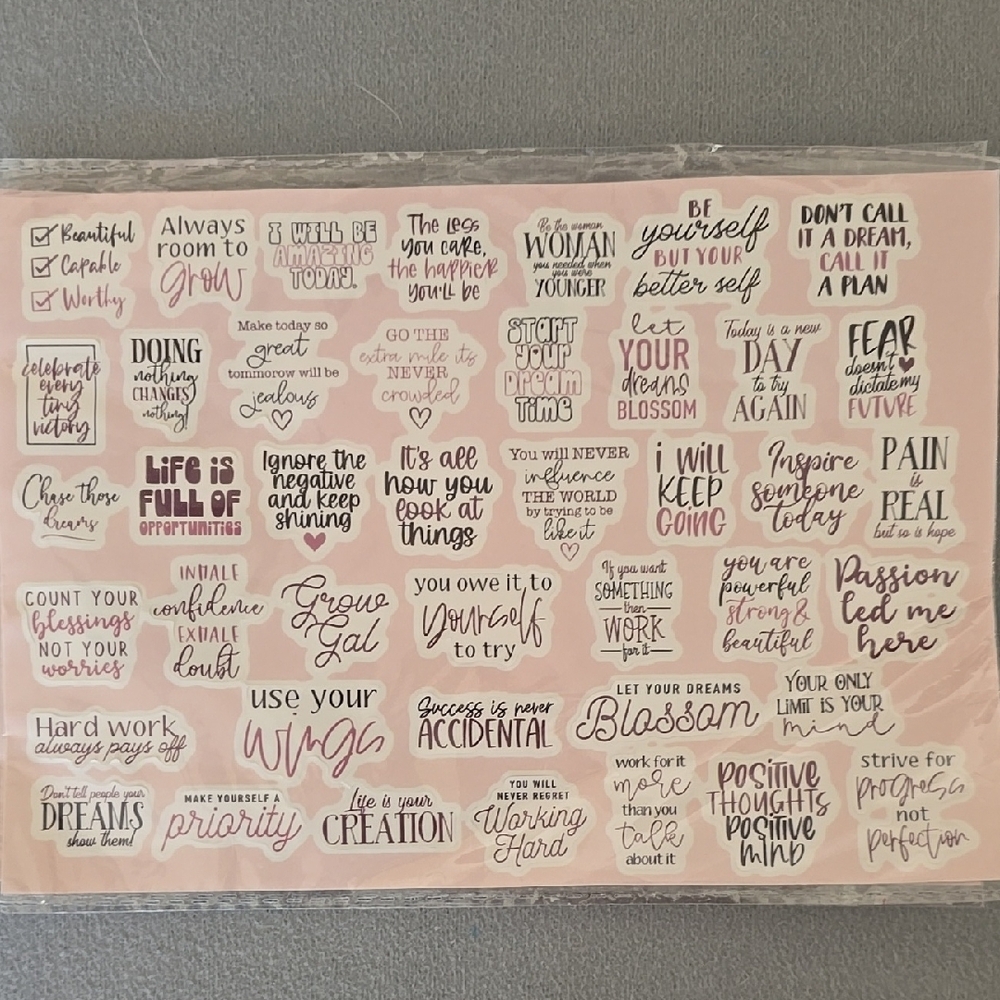 Beautiful
Capable
Worthy
Always
room to
grow
I WILL BE
AMAZING
TODAY.
The Less
you care,
the happier
you'll be
Be the woman
WOMAN
you needed when
you were
YOUNGER
BE
yourself
BUT YOUR
better self
DON'T CALL
IT A DREAM,
CALL IT
A PLAN
celebrate
every
tiny
victory
DOING
nothing
CHANGES
nothing!
Make today so
great
tommorow will be
jealous
GO THE
extra mile its
NEVER
crowded
START
YOUR
DREAM
TIME
let
YOUR
dreams
BLOSSOM
Today is a new
DAY
to try
AGAIN
FEAR
doesn't
dictate my
FUTURE
Chase those
dreams
LIFE IS
FULL OF
OPPORTUNITIES
Ignore the
negative
and keep
shining
It's all
how you
look at
things
You will NEVER
influence
THE WORLD
by trying to be
like it
i WILL
KEEP
GOING
Inspire
someone
today
PAIN
is
REAL
but so is hope
COUNT YOUR
blessings
NOT YOUR
worries
INHALE
confidence
EXHALE
doubt
Grow
Gal
you owe it to
Yourself
to try
If you want
SOMETHING
then
WORK
for it
you are
powerful
strong &
beautiful
Passion
led me
here
Hard work
always pays off
use your
wings
Success is never
ACCIDENTAL
LET YOUR DREAMS
Blossom
YOUR ONLY
LIMIT IS YOUR
mind
Don't tell people your
DREAMS
show them!
MAKE YOURSELF A
priority
Life is your
CREATION
YOU WILL
NEVER REGRET
Working
Hard
work for it
more
than you
talk
about it
POSITIVE
THOUGHTS
POSITIVE
MIND
strive for
progress
not
perfection